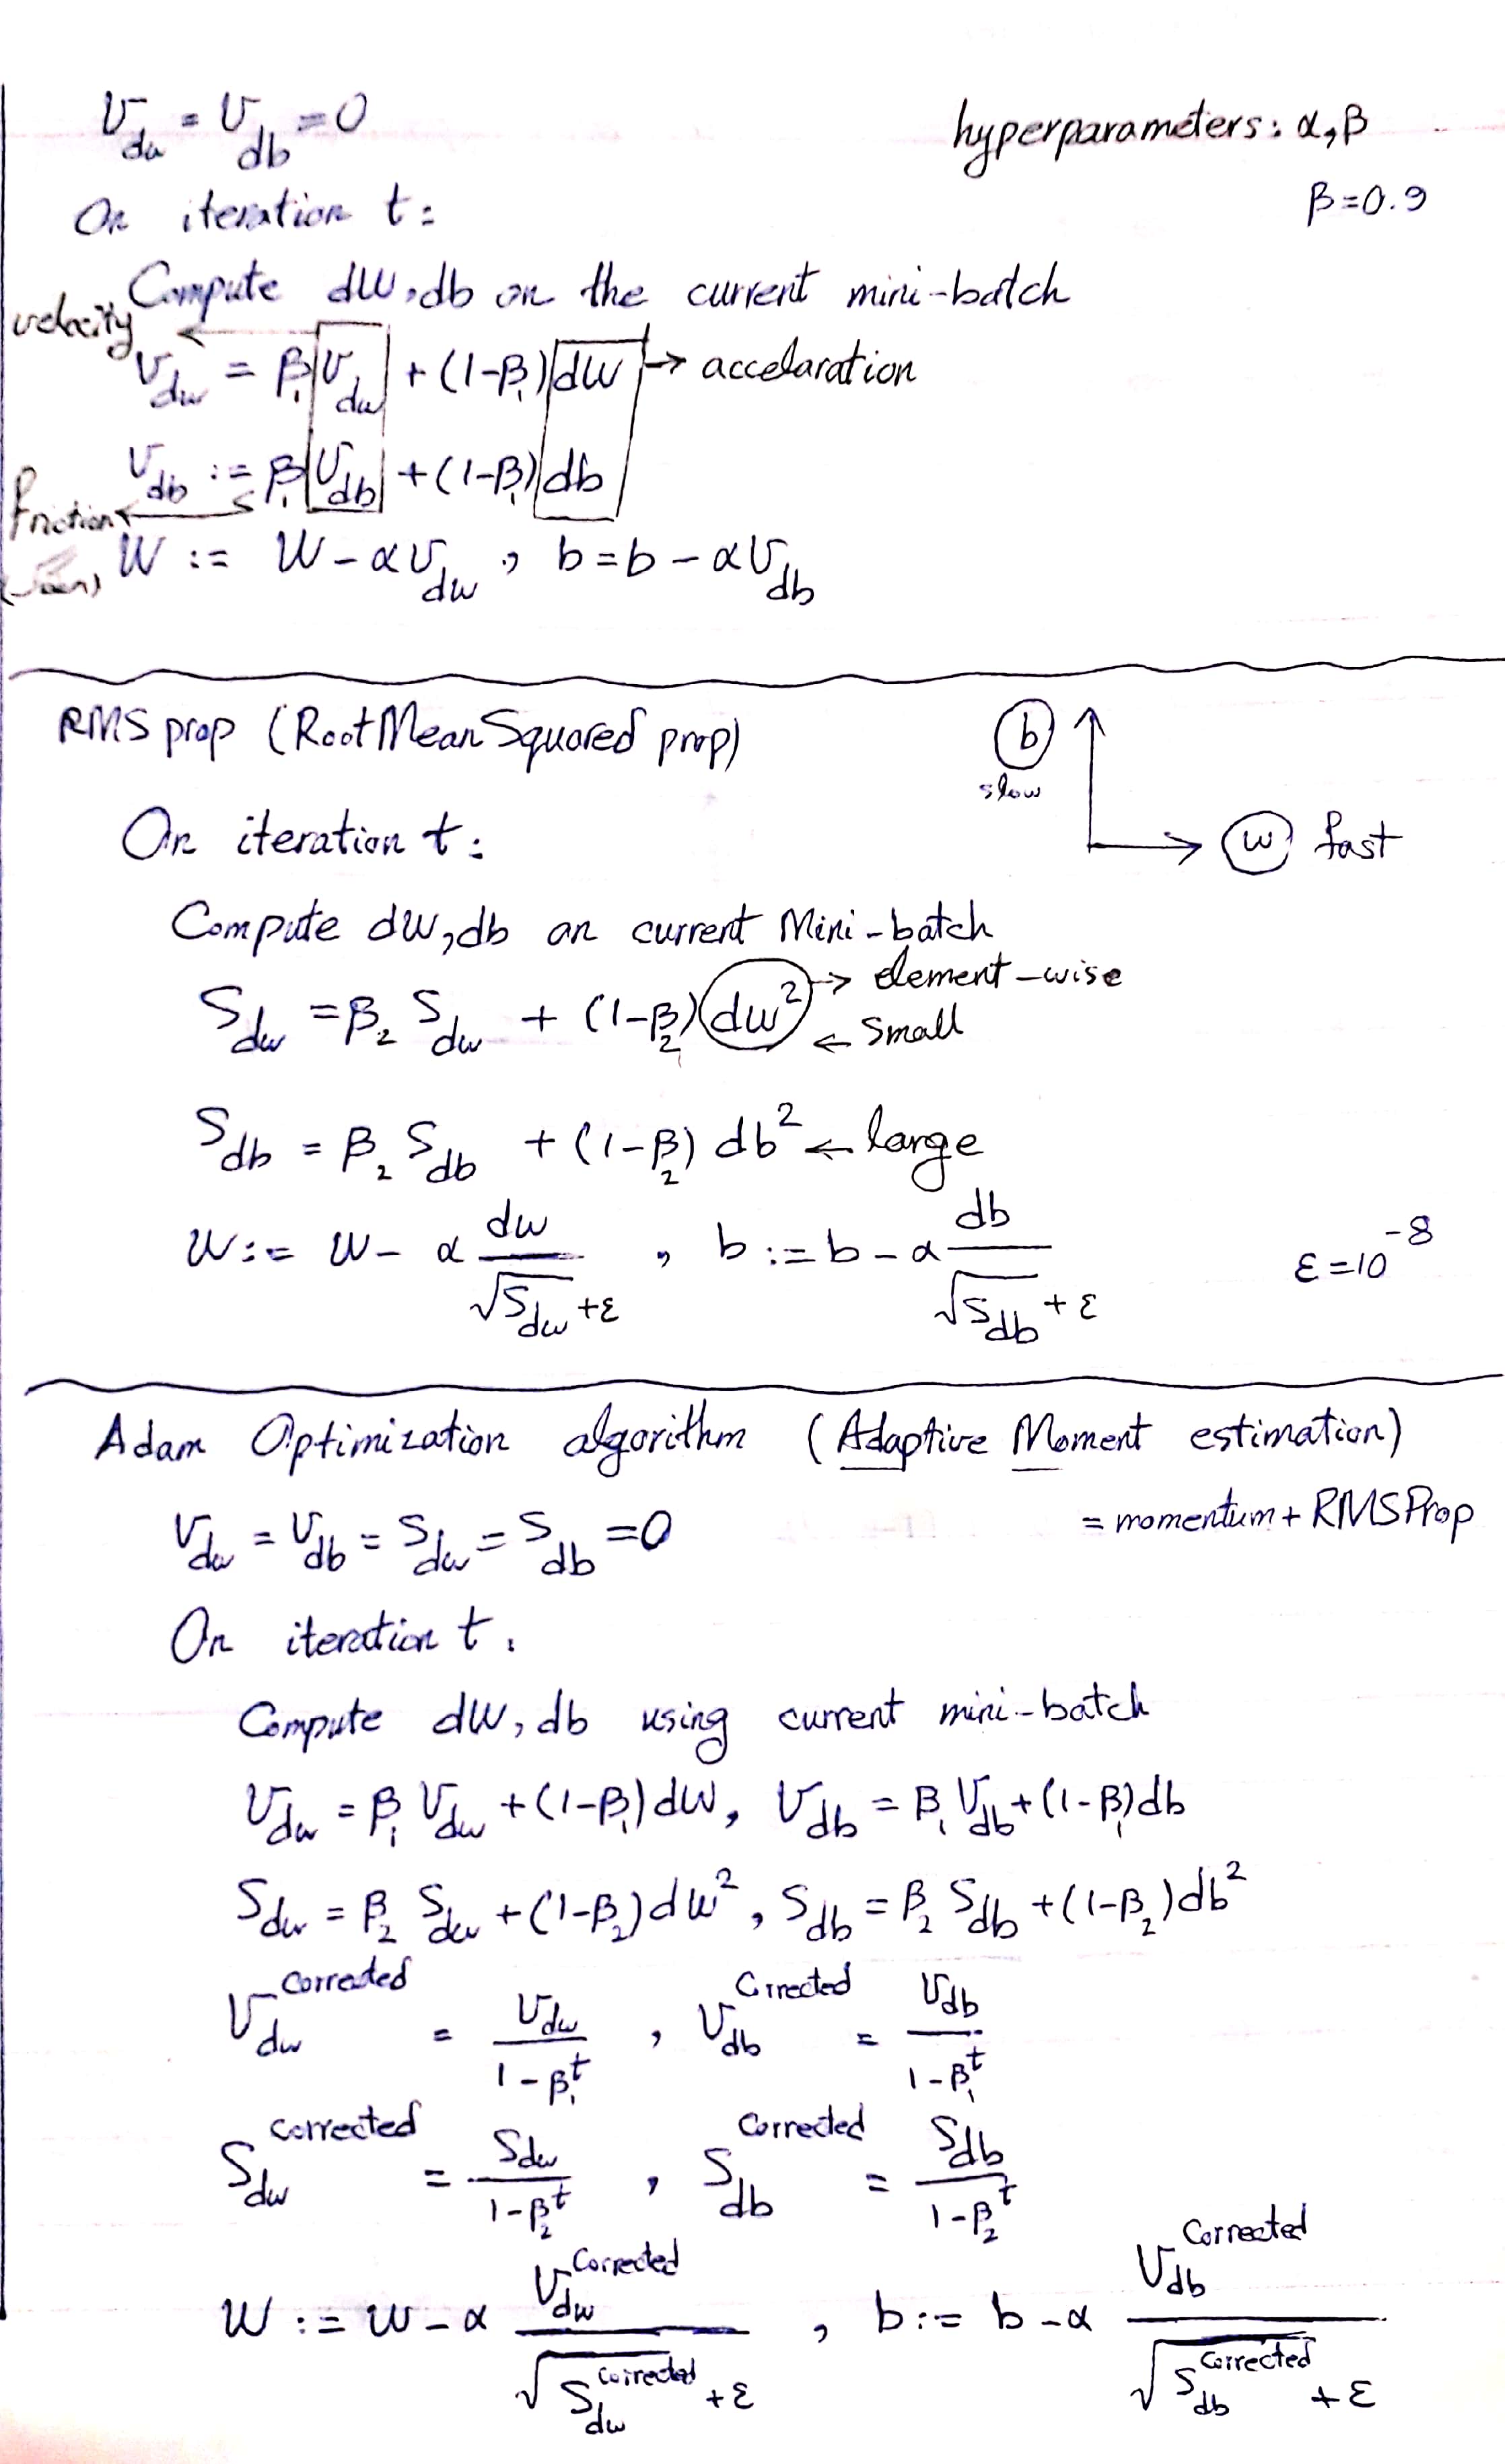 V_dw = V_db = 0
hyperparameters: α, β
β = 0.9
On iteration t:
Compute dW, db on the current mini-batch
velocity
V_dw = β₁ V_dw + (1-β₁) dW → accelaration
V_db := β₁ V_db + (1-β₁) db
Friction
W := W - αV_dw , b = b - αV_db
RMS prop (Root Mean Squared prop)
b
slow
w fast
On iteration t:
Compute dW, db on current Mini-batch
S_dw = β₂ S_dw + (1-β₂) dw² → element-wise
← Small
S_db = β₂ S_db + (1-β₂) db² ← large
W := W - α dw / (√S_dw + ε) , b := b - α db / (√S_db + ε)
ε = 10⁻⁸
Adam Optimization algorithm (Adaptive Moment estimation)
= momentum + RMSProp
V_dw = V_db = S_dw = S_db = 0
On iteration t:
Compute dW, db using current mini-batch
V_dw = β₁ V_dw + (1-β₁) dW, V_db = β₁ V_db + (1-β₁) db
S_dw = β₂ S_dw + (1-β₂) dW², S_db = β₂ S_db + (1-β₂) db²
V_dw^Corrected = V_dw / (1-β₁^t) , V_db^Corrected = V_db / (1-β₁^t)
S_dw^Corrected = S_dw / (1-β₂^t) , S_db^Corrected = S_db / (1-β₂^t)
W := W - α V_dw^Corrected / (√S_dw^Corrected + ε) , b := b - α V_db^Corrected / (√S_db^Corrected + ε)